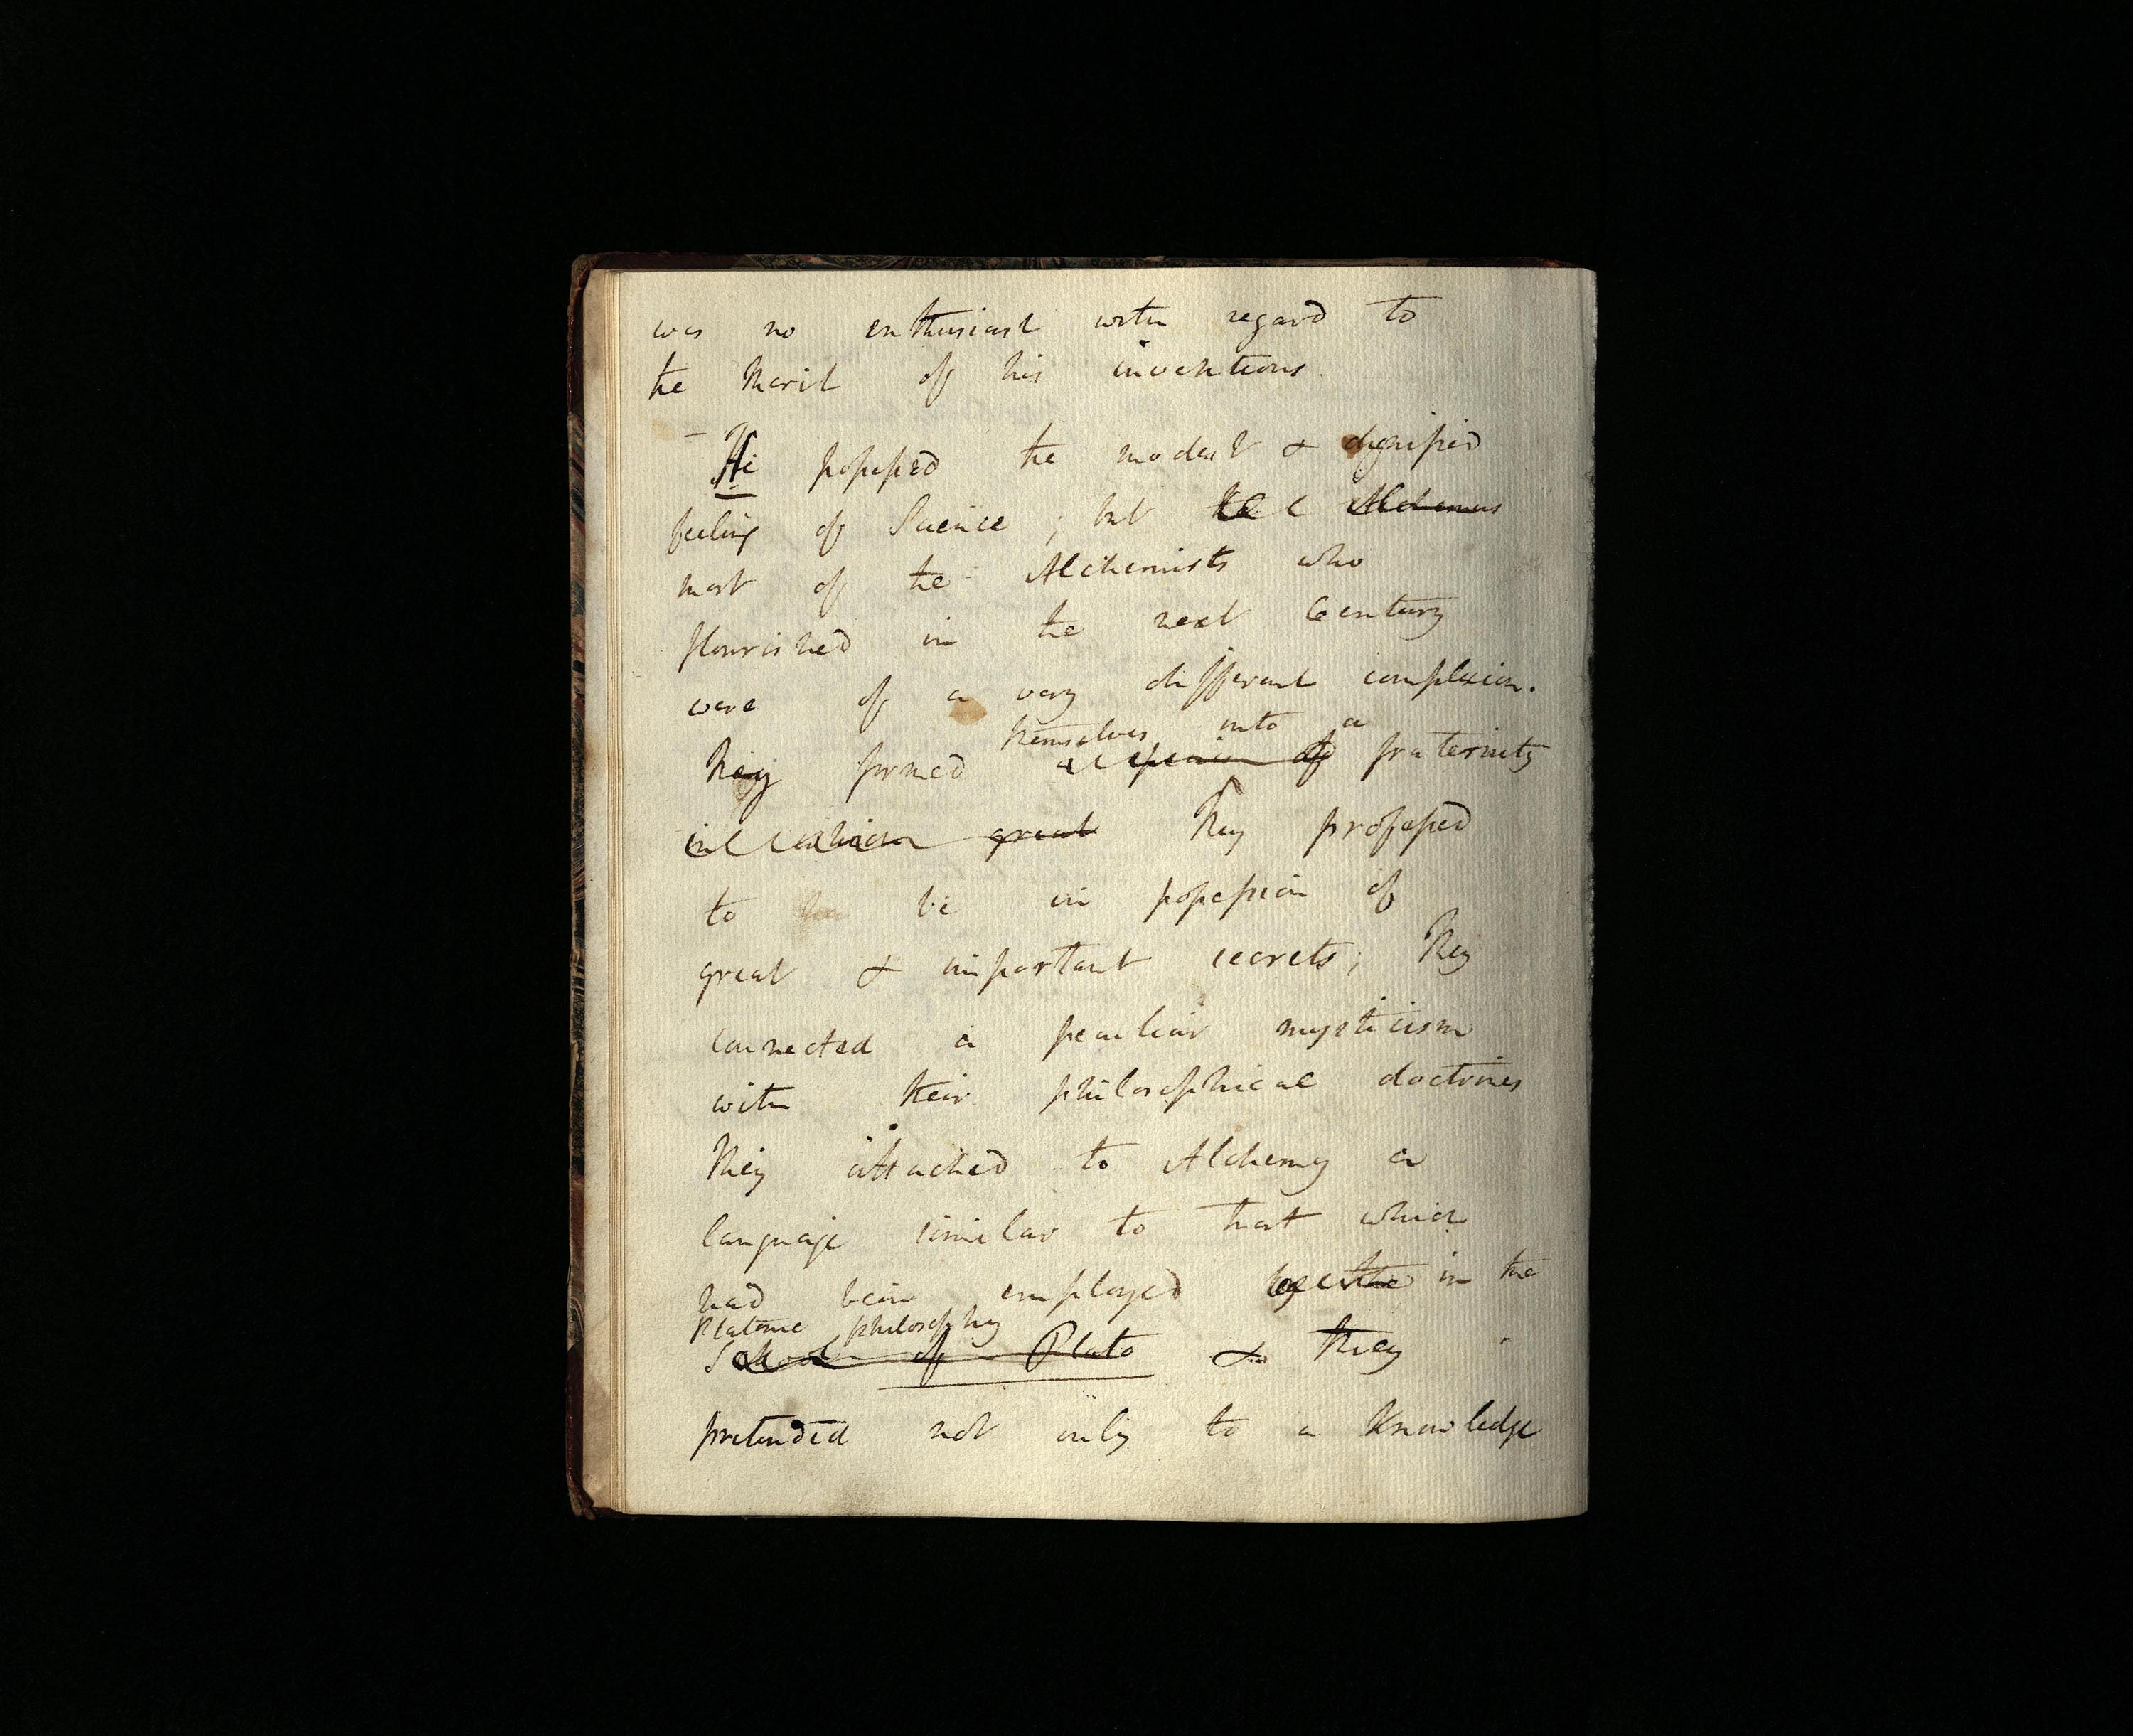 was no enthusiast with regard to
the Merit of his inventions.
– He possessed the modest & dignified
feeling of Science; but the Alchemis
most of the Alchemists who
flourished in the next Century
were of a very different complexion.
themselves into a
They formed a species of fraternity
in which great They professed
to be in possession of
great & important secrets; They
connected a peculiar mysticism
with their philosophical doctrines
They attached to Alchemy a
language similar to that which
had been employed by the in the
Platonic philosophy
School of Plato & they
pretended not only to a Knowledge